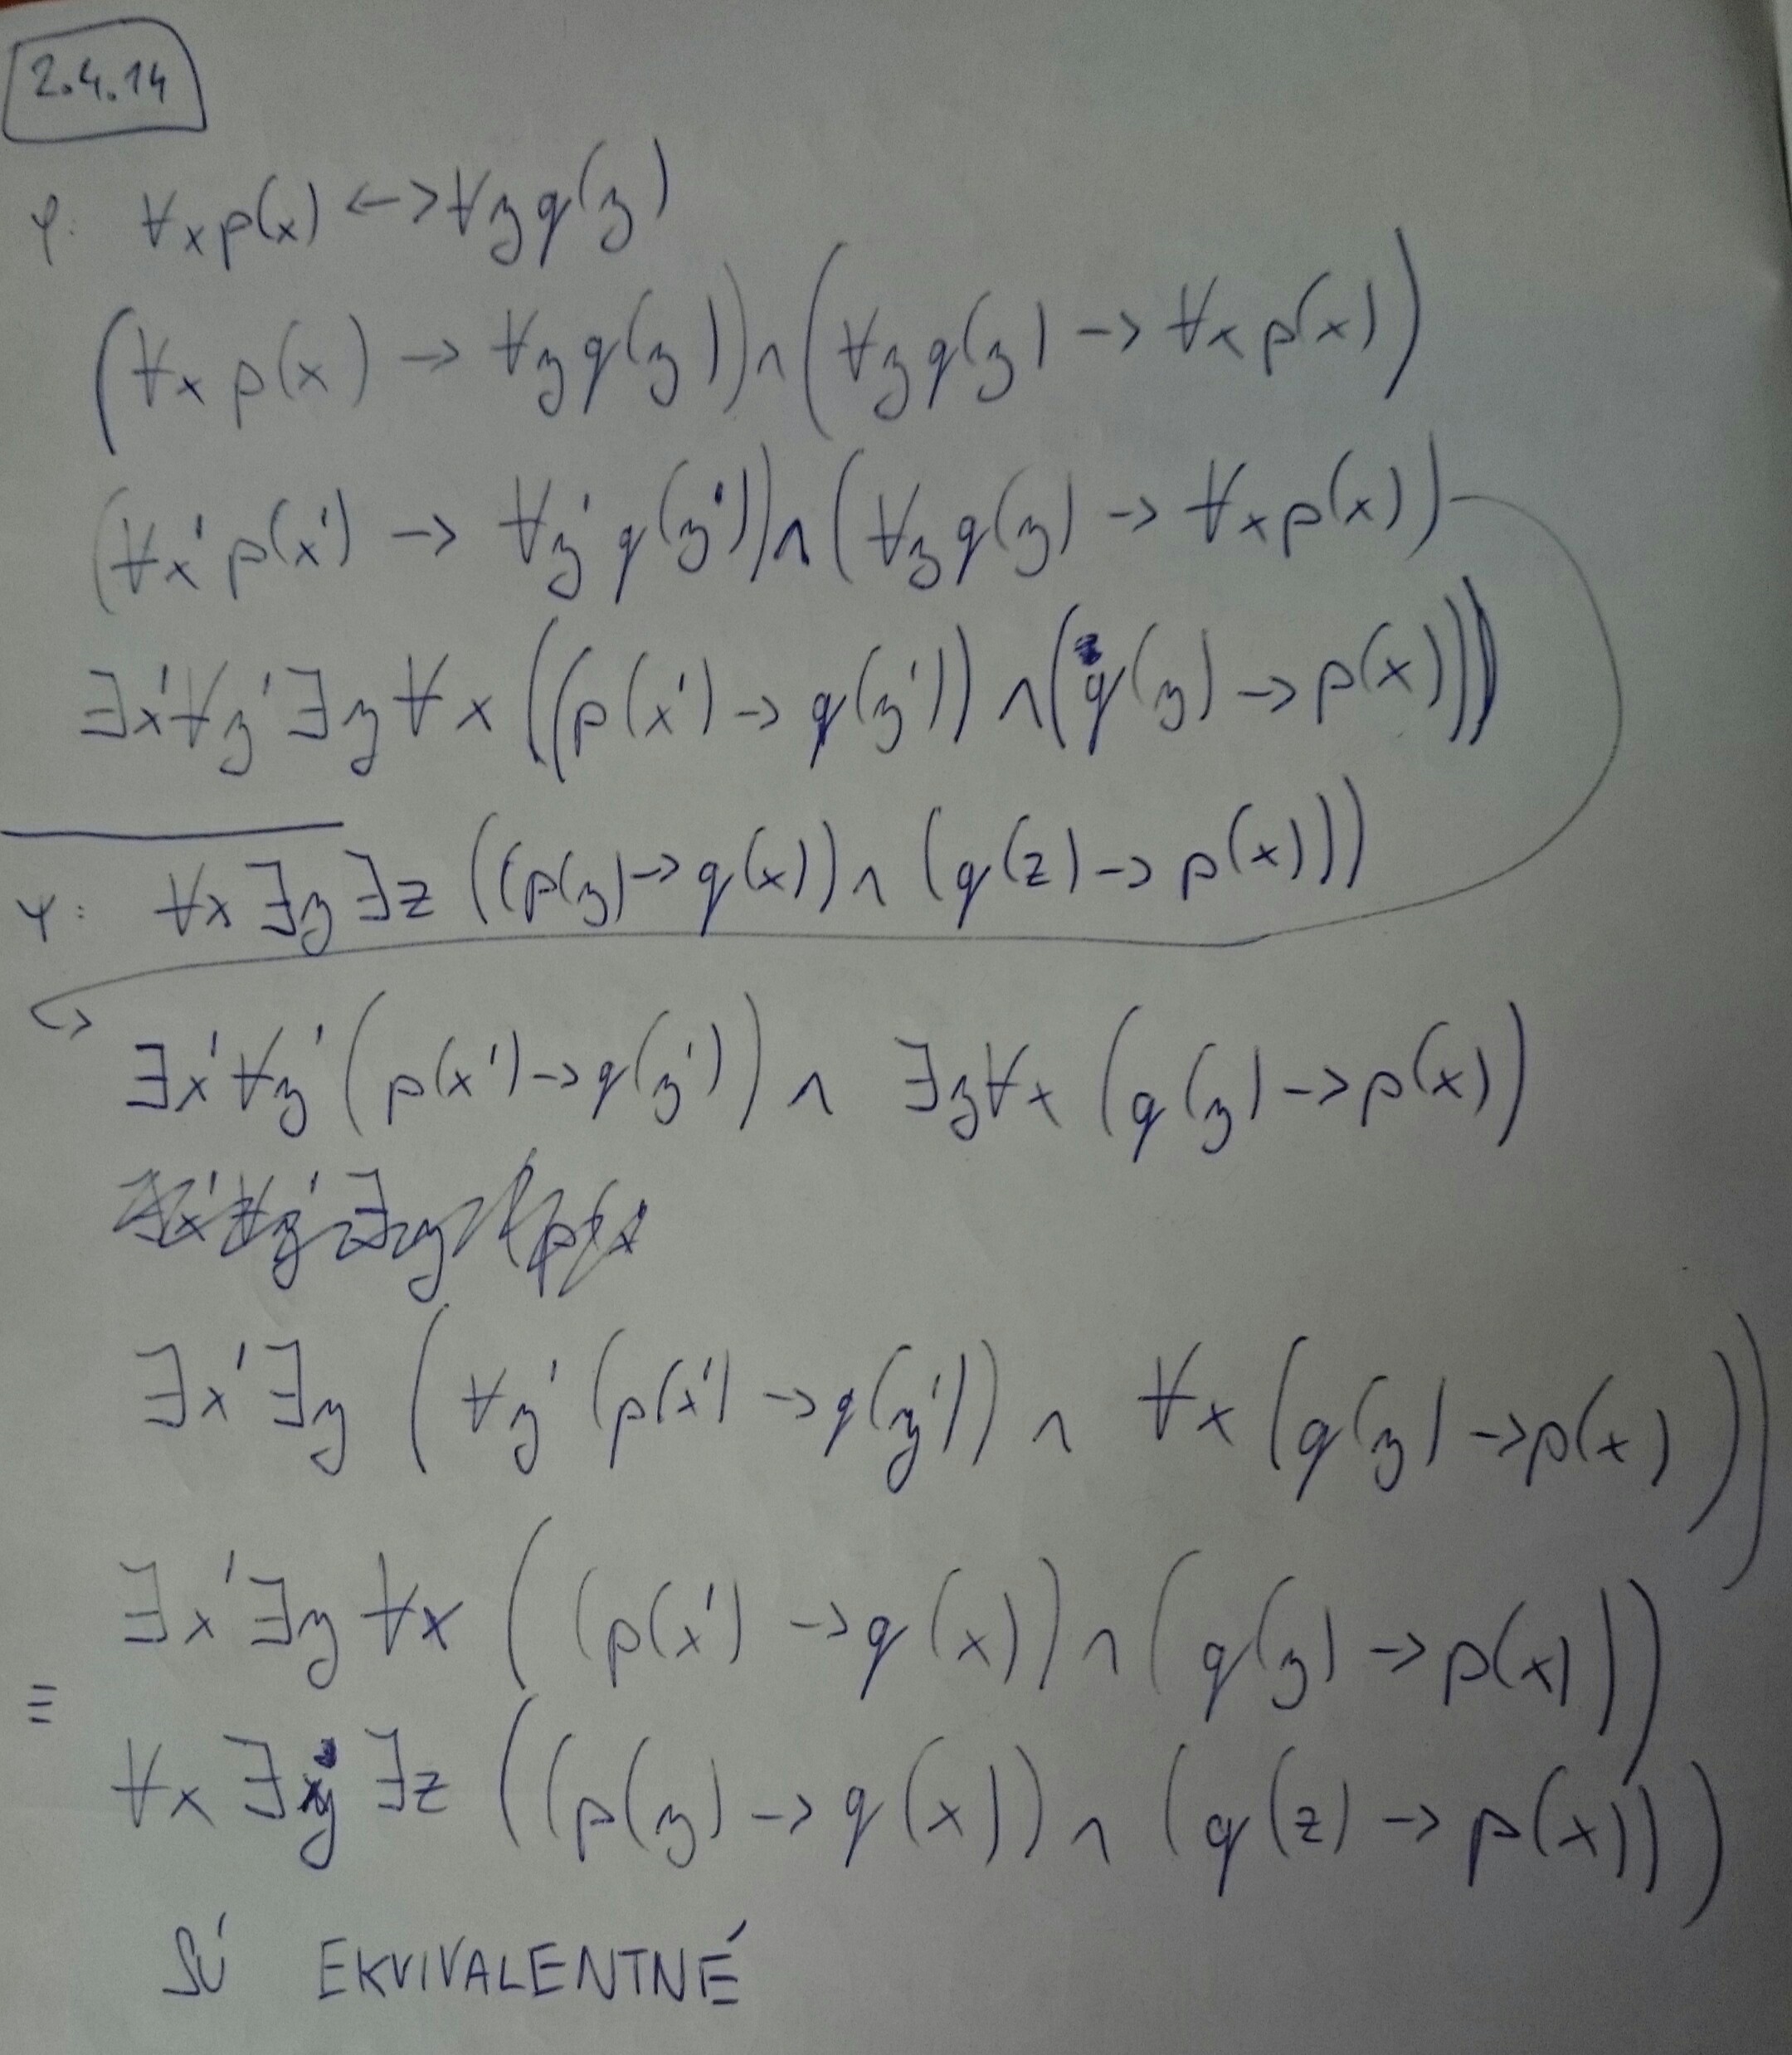 2.4.14
φ: ∀x p(x) <-> ∀y q(y)
(∀x p(x) -> ∀y q(y)) ∧ (∀y q(y) -> ∀x p(x))
(∀x' p(x') -> ∀y' q(y')) ∧ (∀y q(y) -> ∀x p(x))
∃x'∀y'∃y∀x ((p(x') -> q(y')) ∧ (q(y) -> p(x)))
ψ: ∀x ∃y ∃z ((p(y) -> q(x)) ∧ (q(z) -> p(x)))
∃x'∀y' (p(x') -> q(y')) ∧ ∃y∀x (q(y) -> p(x))
∃x'∃y (∀y' (p(x') -> q(y')) ∧ ∀x (q(y) -> p(x)))
∃x'∃y ∀x ((p(x') -> q(x)) ∧ (q(y) -> p(x)))
≡
∀x ∃y ∃z ((p(y) -> q(x)) ∧ (q(z) -> p(x)))
SÚ EKVIVALENTNÉ